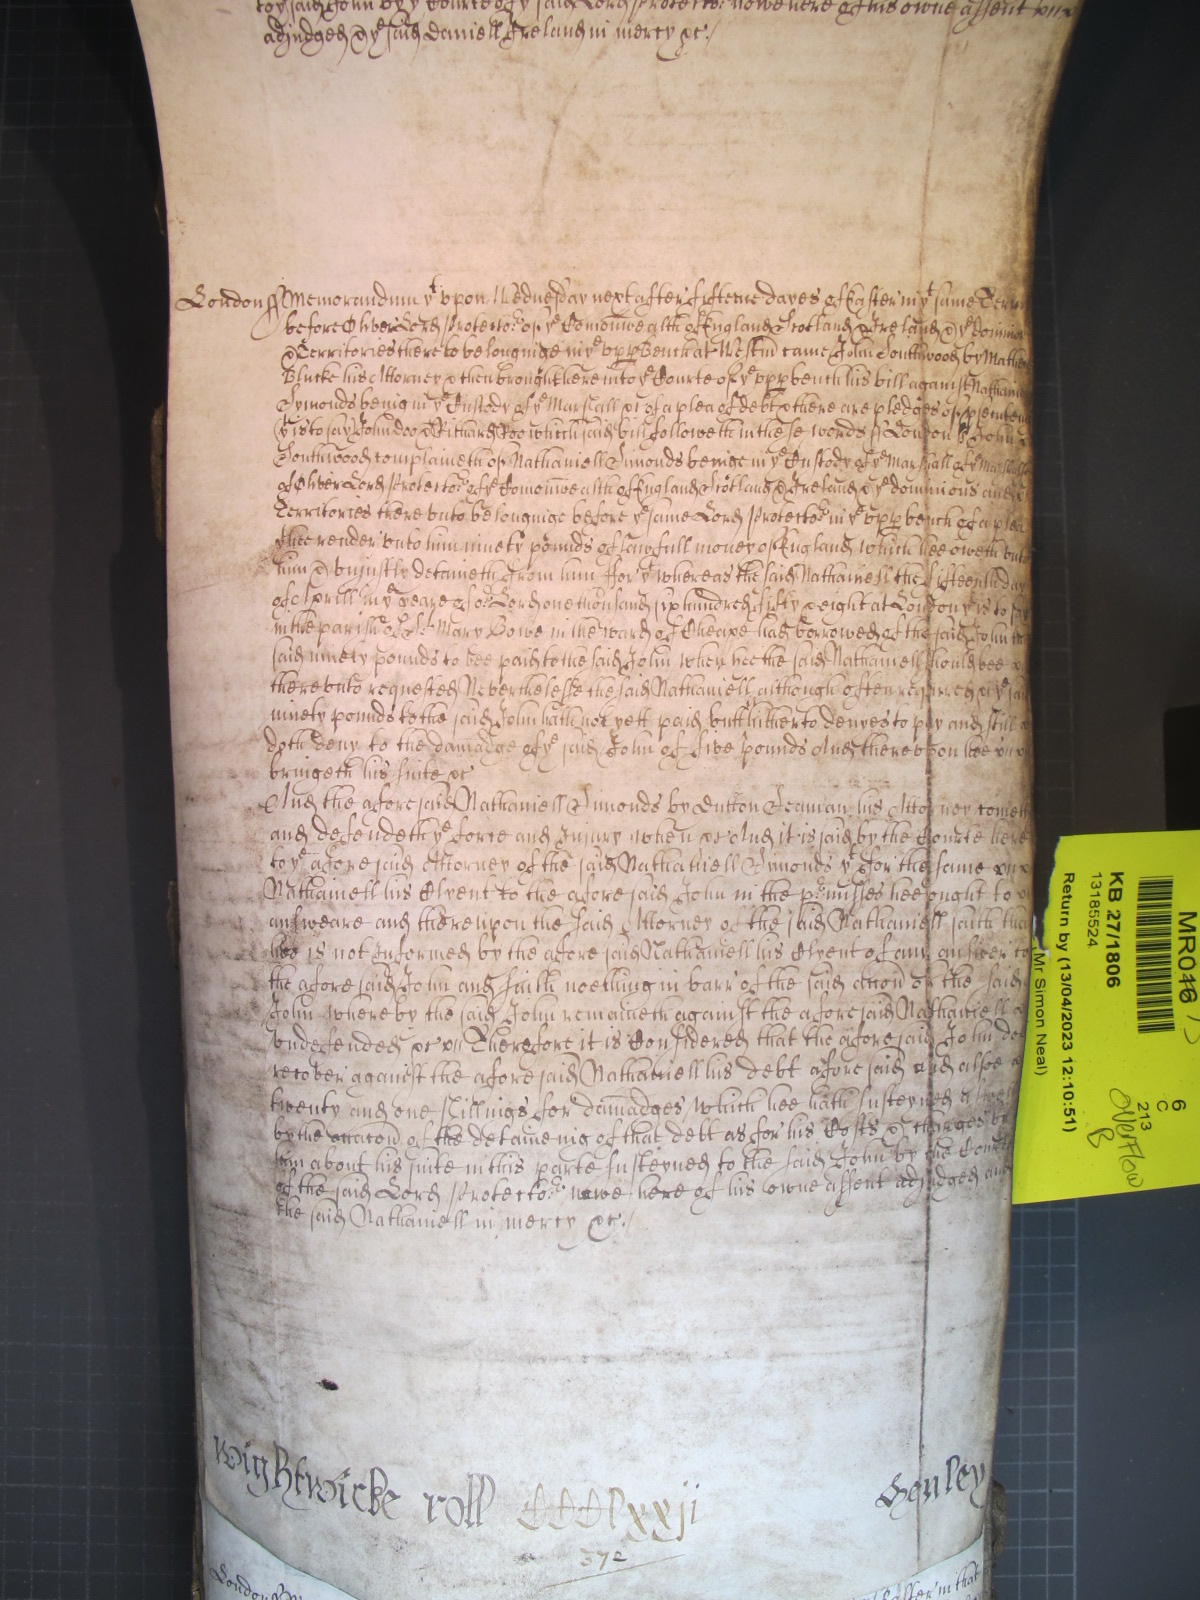 to ye said John by ye Courte of ye said Lord Protector nowe here of his owne assent
adjudged & ye said Daniell Ireland in mercy &c./
London ss Memorandum yt upon Wednesday next after fifteene dayes of Easter in ye same Terme
before Oliver Lord Protector of ye Comonwealth of England Scotland & Ireland & ye Dominions
& Territories thereto belonginge in ye upper Bench at Westm came John Southwood by Mathew
Blucke his Attorney & then brought here into ye Courte of ye upper bench his bill against Nathaniell
Symonds beinig in ye Custody of ye Marshall &c of a plea of debt & there are pledges of psecuten
yt is to say John doo & Richard Roo which said bill followeth in these words ss London ss John
Southwood complaineth of Nathaniell Simonds beinge in ye Custody of ye Marshall of ye Marshalsea
of Oliver Lord Protector of ye Comonwealth of England Scotland & Ireland & ye dominions and
Territories thereunto belonginge before ye same Lord Protector in ye upp bench of a plea
yt hee render unto him ninety pounds of lawfull money of England which hee oweth unto
him & unjustly detaineth from him for yt whereas the said Nathaniell the fifteenth day
of Aprill in ye yeare of or Lord one thousand six hundred fifty & eight at London yt is to say
in the parish of St Mary Bowe in the ward of Cheape had borrowed of the said John the
said ninety pounds to bee paid to the said John when hee the said Nathaniell should bee
thereunto requested Neverthelesse the said Nathaniell although often required ye said
ninety pounds to the said John hath not yett paid butt hitherto denyes to pay and still
doth deny to the damadge of ye said John of five pounds And thereupon hee
bringeth his suite &c
And the aforesaid Nathaniell Simonds by Dutton Seaman his Attorney cometh
and defendeth ye force and Injury when &c And it is said by the Courte here
to ye aforesaid Attorney of the said Nathaniell Simonds yt for the same
Nathaniell his Clyent to the aforesaid John in the premisses hee ought to
answeare and thereupon the said Attorney of the said Nathaniell saith that
hee is not Informed by the aforesaid Nathaniell his Clyent of any answer to
the aforesaid John and saith noething in barr of the said action of the said
John whereby the said John remaineth against the aforesaid Nathaniell
undefended &c Therefore it is Considered that the aforesaid John doe
recover against the aforesaid Nathaniell his debt aforesaid and alsoe
twenty and one shillings for damadges which hee hath susteyned
by the occacon of the detaineinig of that debt as for his Costs & charges by
him about his suite in this parte susteyned to the said John by the Courte
of the said Lord Protector nowe here of his owne assent adjudged and
the said Nathaniell in mercy &c./
Wightwicke roll CCClxxij Henley
372
London ss
Easter in that
MR046
KB 27/1806
13185524
Return by (13/04/2023 12:10:51)
(Mr Simon Neal)
6
C
213
Overflow
B